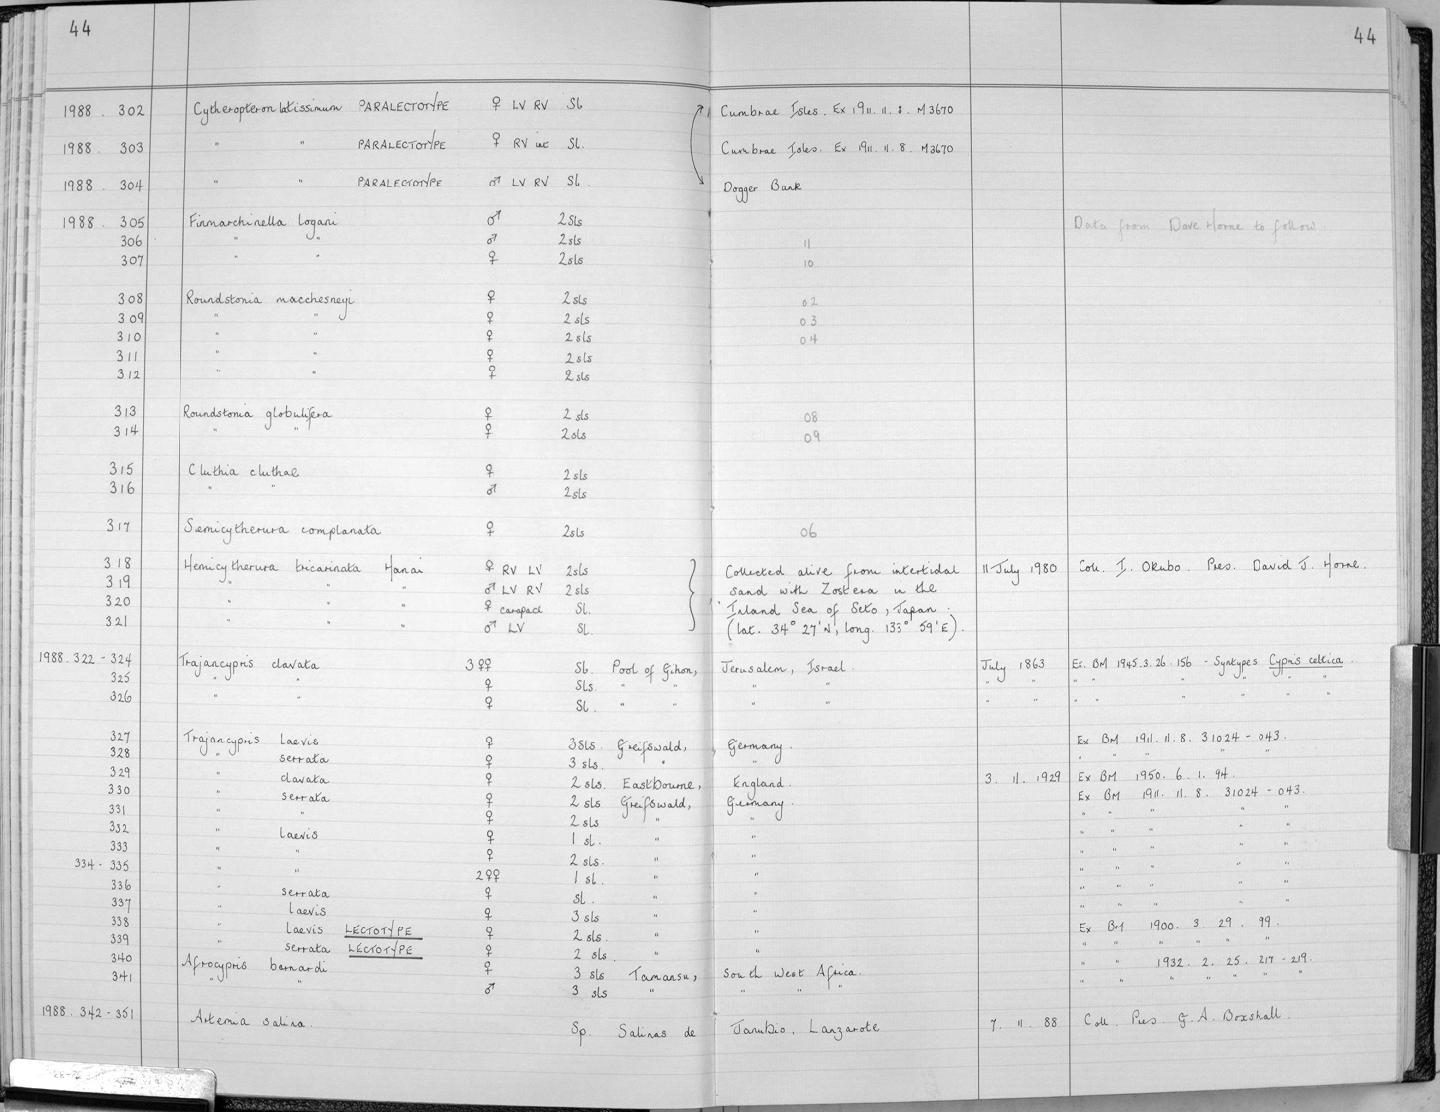 44
44
1988 . 302 Cytheropteron latissimum PARALECTOTYPE ♀ LV RV Sl. Cumbrae Isles. Ex 1911. 11. 8. M3670
1988 . 303 " " PARALECTOTYPE ♀ RV inc Sl. Cumbrae Isles. Ex 1911. 11. 8. M3670
1988 . 304 " " PARALECTOTYPE ♂ LV RV Sl. Dogger Bank
1988 . 305 Finmarchinella logani ♂ 2sls Data from Dave Horne to follow.
306 " " ♂ 2sls 11
307 " " ♀ 2sls 10
308 Roundstonia macchesneyi ♀ 2sls 02
309 " " ♀ 2sls 03
310 " " ♀ 2sls 04
311 " " ♀ 2sls
312 " " ♀ 2sls
313 Roundstonia globulifera ♀ 2sls 08
314 " " ♀ 2sls 09
315 Cluthia cluthae ♀ 2sls
316 " " ♂ 2sls
317 Semicytherura complanata ♀ 2sls 06
318 Hemicytherura tricarinata Hanai ♀ RV LV 2sls Collected alive from intertidal 11 July 1980 Coll. I. Okubo. Pres. David J. Horne.
319 " " " ♂ LV RV 2sls sand with Zostera in the
320 " " " ♀ carapace Sl. Inland Sea of Seto, Japan.
321 " " " ♂ LV Sl. (lat. 34° 27'N, long. 133° 59'E).
1988. 322 - 324 Trajancypris clavata 3♀♀ Sl. Pool of Gihon, Jerusalem, Israel. July 1863 Ex. BM 1945. 3. 26. 156 - Syntypes Cypris celtica.
325 " " ♀ Sls. " " " " " " " " " " " "
326 " " ♀ Sl. " " " " " " " " " " " "
327 Trajancypris laevis ♀ 3sls. Greifswald, Germany. Ex BM 1911. 11. 8. 31024 - 043.
328 " serrata ♀ 3 sls. " " " " " " "
329 " clavata ♀ 2 sls. Eastbourne, England. 3. 11. 1929 Ex BM 1950. 6. 1. 94.
330 " serrata ♀ 2 sls Greifswald, Germany. Ex BM 1911. 11. 8. 31024 - 043.
331 " " ♀ 2 sls " " " " " " "
332 " laevis ♀ 1 sl. " " " " " " "
333 " " ♀ 2 sls. " " " " " " "
334 - 335 " " 2♀♀ 1 sl. " " " " " " "
336 " serrata ♀ sl. " " " " " " "
337 " laevis ♀ 3 sls " " " " " " "
338 " laevis LECTOTYPE ♀ 2 sls. " " Ex BM 1900. 3. 29. 99.
339 " serrata LECTOTYPE ♀ 2 sls. " " " " " " " "
340 Afrocypris barnardi ♀ 3 sls Tamansu, South West Africa. " " 1932. 2. 25. 217 - 219.
341 " " ♂ 3 sls " " " " " " " " " "
1988. 342 - 351 Artemia salina. Sp. Salinas de Janubio, Lanzarote 7. 11. 88 Coll. Pres G. A. Boxshall.